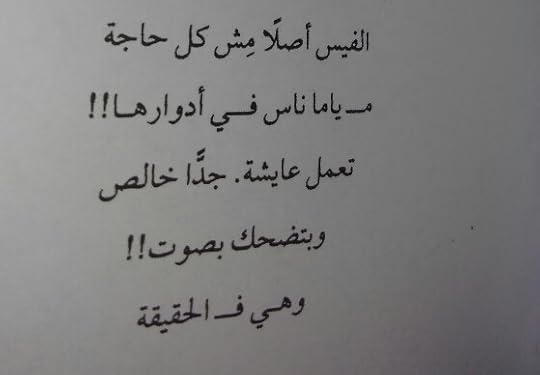 الفيس أصلًا مِش كل حاجة
مـ ياما ناس فـي أدوارهـا!!
تعمل عايشة. جدًّا خالص
وبتضحك بصوت!!
وهي فـ الحقيقة